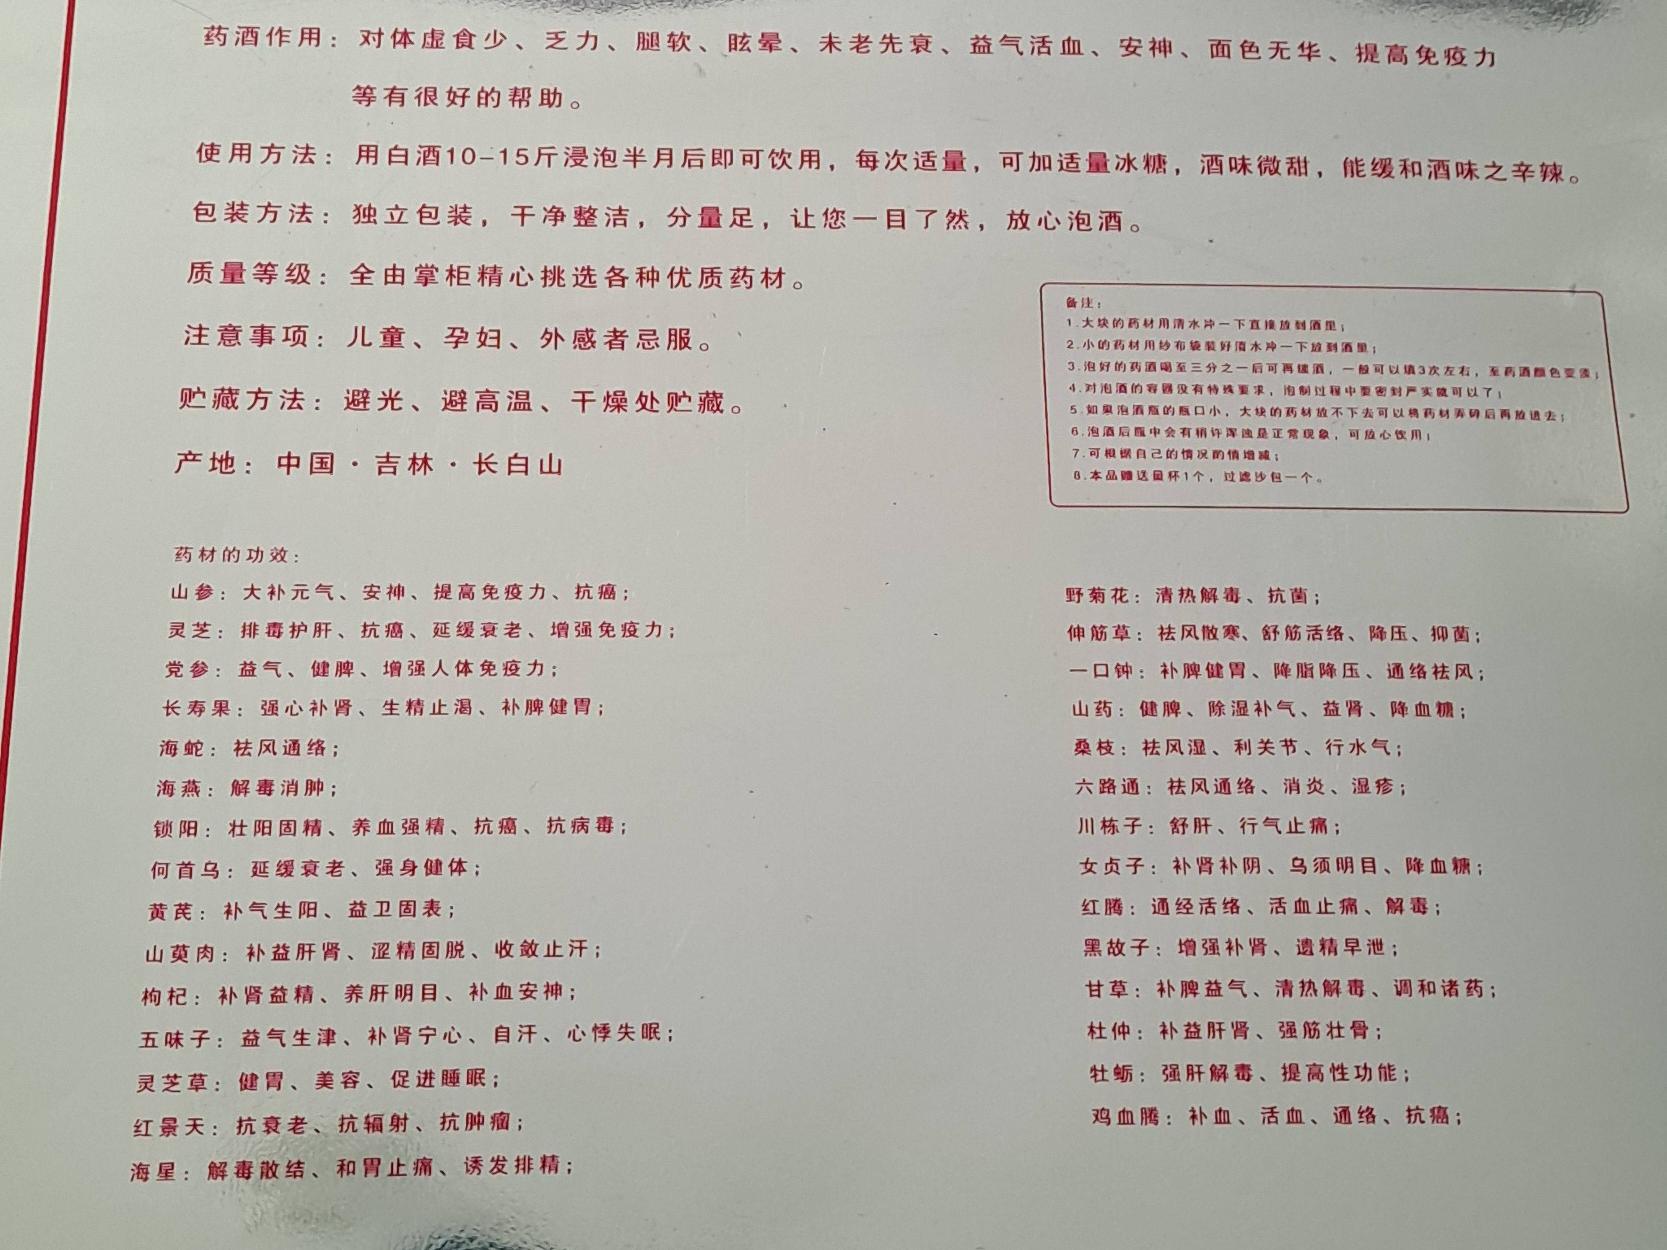 药酒作用：对体虚食少、乏力、腿软、眩晕、未老先衰、益气活血、安神、面色无华、提高免疫力
等有很好的帮助。
使用方法：用白酒10-15斤浸泡半月后即可饮用，每次适量，可加适量冰糖，酒味微甜，能缓和酒味之辛辣。
包装方法：独立包装，干净整洁，分量足，让您一目了然，放心泡酒。
质量等级：全由掌柜精心挑选各种优质药材。
注意事项：儿童、孕妇、外感者忌服。
贮藏方法：避光、避高温、干燥处贮藏。
产地：中国·吉林·长白山
备注：
1.大块的药材用清水冲一下直接放到酒里；
2.小的药材用纱布袋装好清水冲一下放到酒里；
3.泡好的药酒喝至三分之一后可再续酒，一般可以填3次左右，至药酒颜色变淡；
4.对泡酒的容器没有特殊要求，泡制过程中要密封严实就可以了；
5.如果泡酒瓶的瓶口小，大块的药材放不下去可以将药材弄碎后再放进去；
6.泡酒后瓶中会有稍许浑浊是正常现象，可放心饮用；
7.可根据自己的情况酌情增减；
8.本品赠送量杯1个，过滤沙包一个。
药材的功效：
山参：大补元气、安神、提高免疫力、抗癌；
灵芝：排毒护肝、抗癌、延缓衰老、增强免疫力；
党参：益气、健脾、增强人体免疫力；
长寿果：强心补肾、生精止渴、补脾健胃；
海蛇：祛风通络；
海燕：解毒消肿；
锁阳：壮阳固精、养血强精、抗癌、抗病毒；
何首乌：延缓衰老、强身健体；
黄芪：补气生阳、益卫固表；
山萸肉：补益肝肾、涩精固脱、收敛止汗；
枸杞：补肾益精、养肝明目、补血安神；
五味子：益气生津、补肾宁心、自汗、心悸失眠；
灵芝草：健胃、美容、促进睡眠；
红景天：抗衰老、抗辐射、抗肿瘤；
海星：解毒散结、和胃止痛、诱发排精；
野菊花：清热解毒、抗菌；
伸筋草：祛风散寒、舒筋活络、降压、抑菌；
一口钟：补脾健胃、降脂降压、通络祛风；
山药：健脾、除湿补气、益肾、降血糖；
桑枝：祛风湿、利关节、行水气；
六路通：祛风通络、消炎、湿疹；
川栋子：舒肝、行气止痛；
女贞子：补肾补阴、乌须明目、降血糖；
红腾：通经活络、活血止痛、解毒；
黑故子：增强补肾、遗精早泄；
甘草：补脾益气、清热解毒、调和诸药；
杜仲：补益肝肾、强筋壮骨；
牡蛎：强肝解毒、提高性功能；
鸡血腾：补血、活血、通络、抗癌；